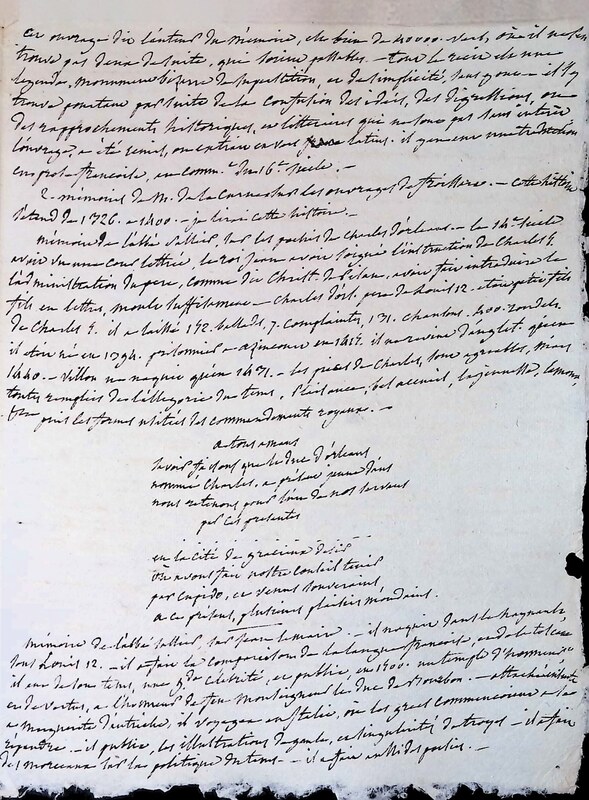 cet ouvrage dit l'auteur du mémoire, est bien de 40000. vers, où il ne s'en
trouve pas deux de suite, qui soient passables. - tout le récit est une
légende, monument bizarre de superstition, et de simplicité, sans gout - il s'y
trouve pourtant par suite de la confusion des idées, des digressions, ou
des rapprochements historiques, et litteraires qui ne sont pas sans intérêt
l'ouvrage a été remis, ou extrait en vers latins. il y en eut une traduction
en prose françoise, au comm.t du 16.e siècle. -
2. mémoires de M. de la Curne sur les ouvrages de froissard. - cette histoire
s'étend de 1326. a 1400. - je lirai cette histoire. -
mémoire de l'abbé sallier, sur les poesies de Charles d'orleans. - le 14.e siècle
avoit vu une cour lettrée, le roi jean avoit soigné l'instruction de Charles 5.
l'administration du pere, comme dit Christ. de Pisan, avoit fait introduire le
fils en lettres, moult suffisamment - Charles d'orl. pere de Louis 12. etoit petit fils
de Charles 5. il a laissé 152. ballades, 7. complaintes, 131. chansons. 400. rondels.
il etoit né en 1394. prisonnier a azincourt en 1415. il ne revint d'anglet. qu'en
1440. - villon ne naquit qu'en 1431. - les pieces de Charles, sont agréables, mais
toutes remplies de l'allegorie du tems, plaisance, bel accueil, la jeunesse,
pris les formes usitées des commandements royaux. -
a tous amans
savoir faisons que le duc d'orleans
nommé Charles, a présent jeune d'ans
nous retenons pour l'un de nos servans
par ces presentes
en la cité de gracieux désir
où avons fait nostre conseil tenir
par cupido, et venus souverains,
a ce présent, plusieurs plaisirs mondains.
mémoire de l'abbé sallier, sur jean lemaire. - il naquit dans le haynault,
sous Louis 12. - il a fait la comparaison de la langue françoise, et de la toscane
il eut de son tems, une g.de célébrité, et publia, en 1500. un temple d'honneur
et de vertus, a l'honneur de feu monseigneur le duc de Bourbon. - attaché ensuite
a marguerite d'autriche, il voyagea en Italie, où les grecs commencoient a se
répandre. - il publia, les illustrations de gaule, et singularités de troyes - il a fait
des morceaux sur la politique du tems - il a fait aussi des poesies. -